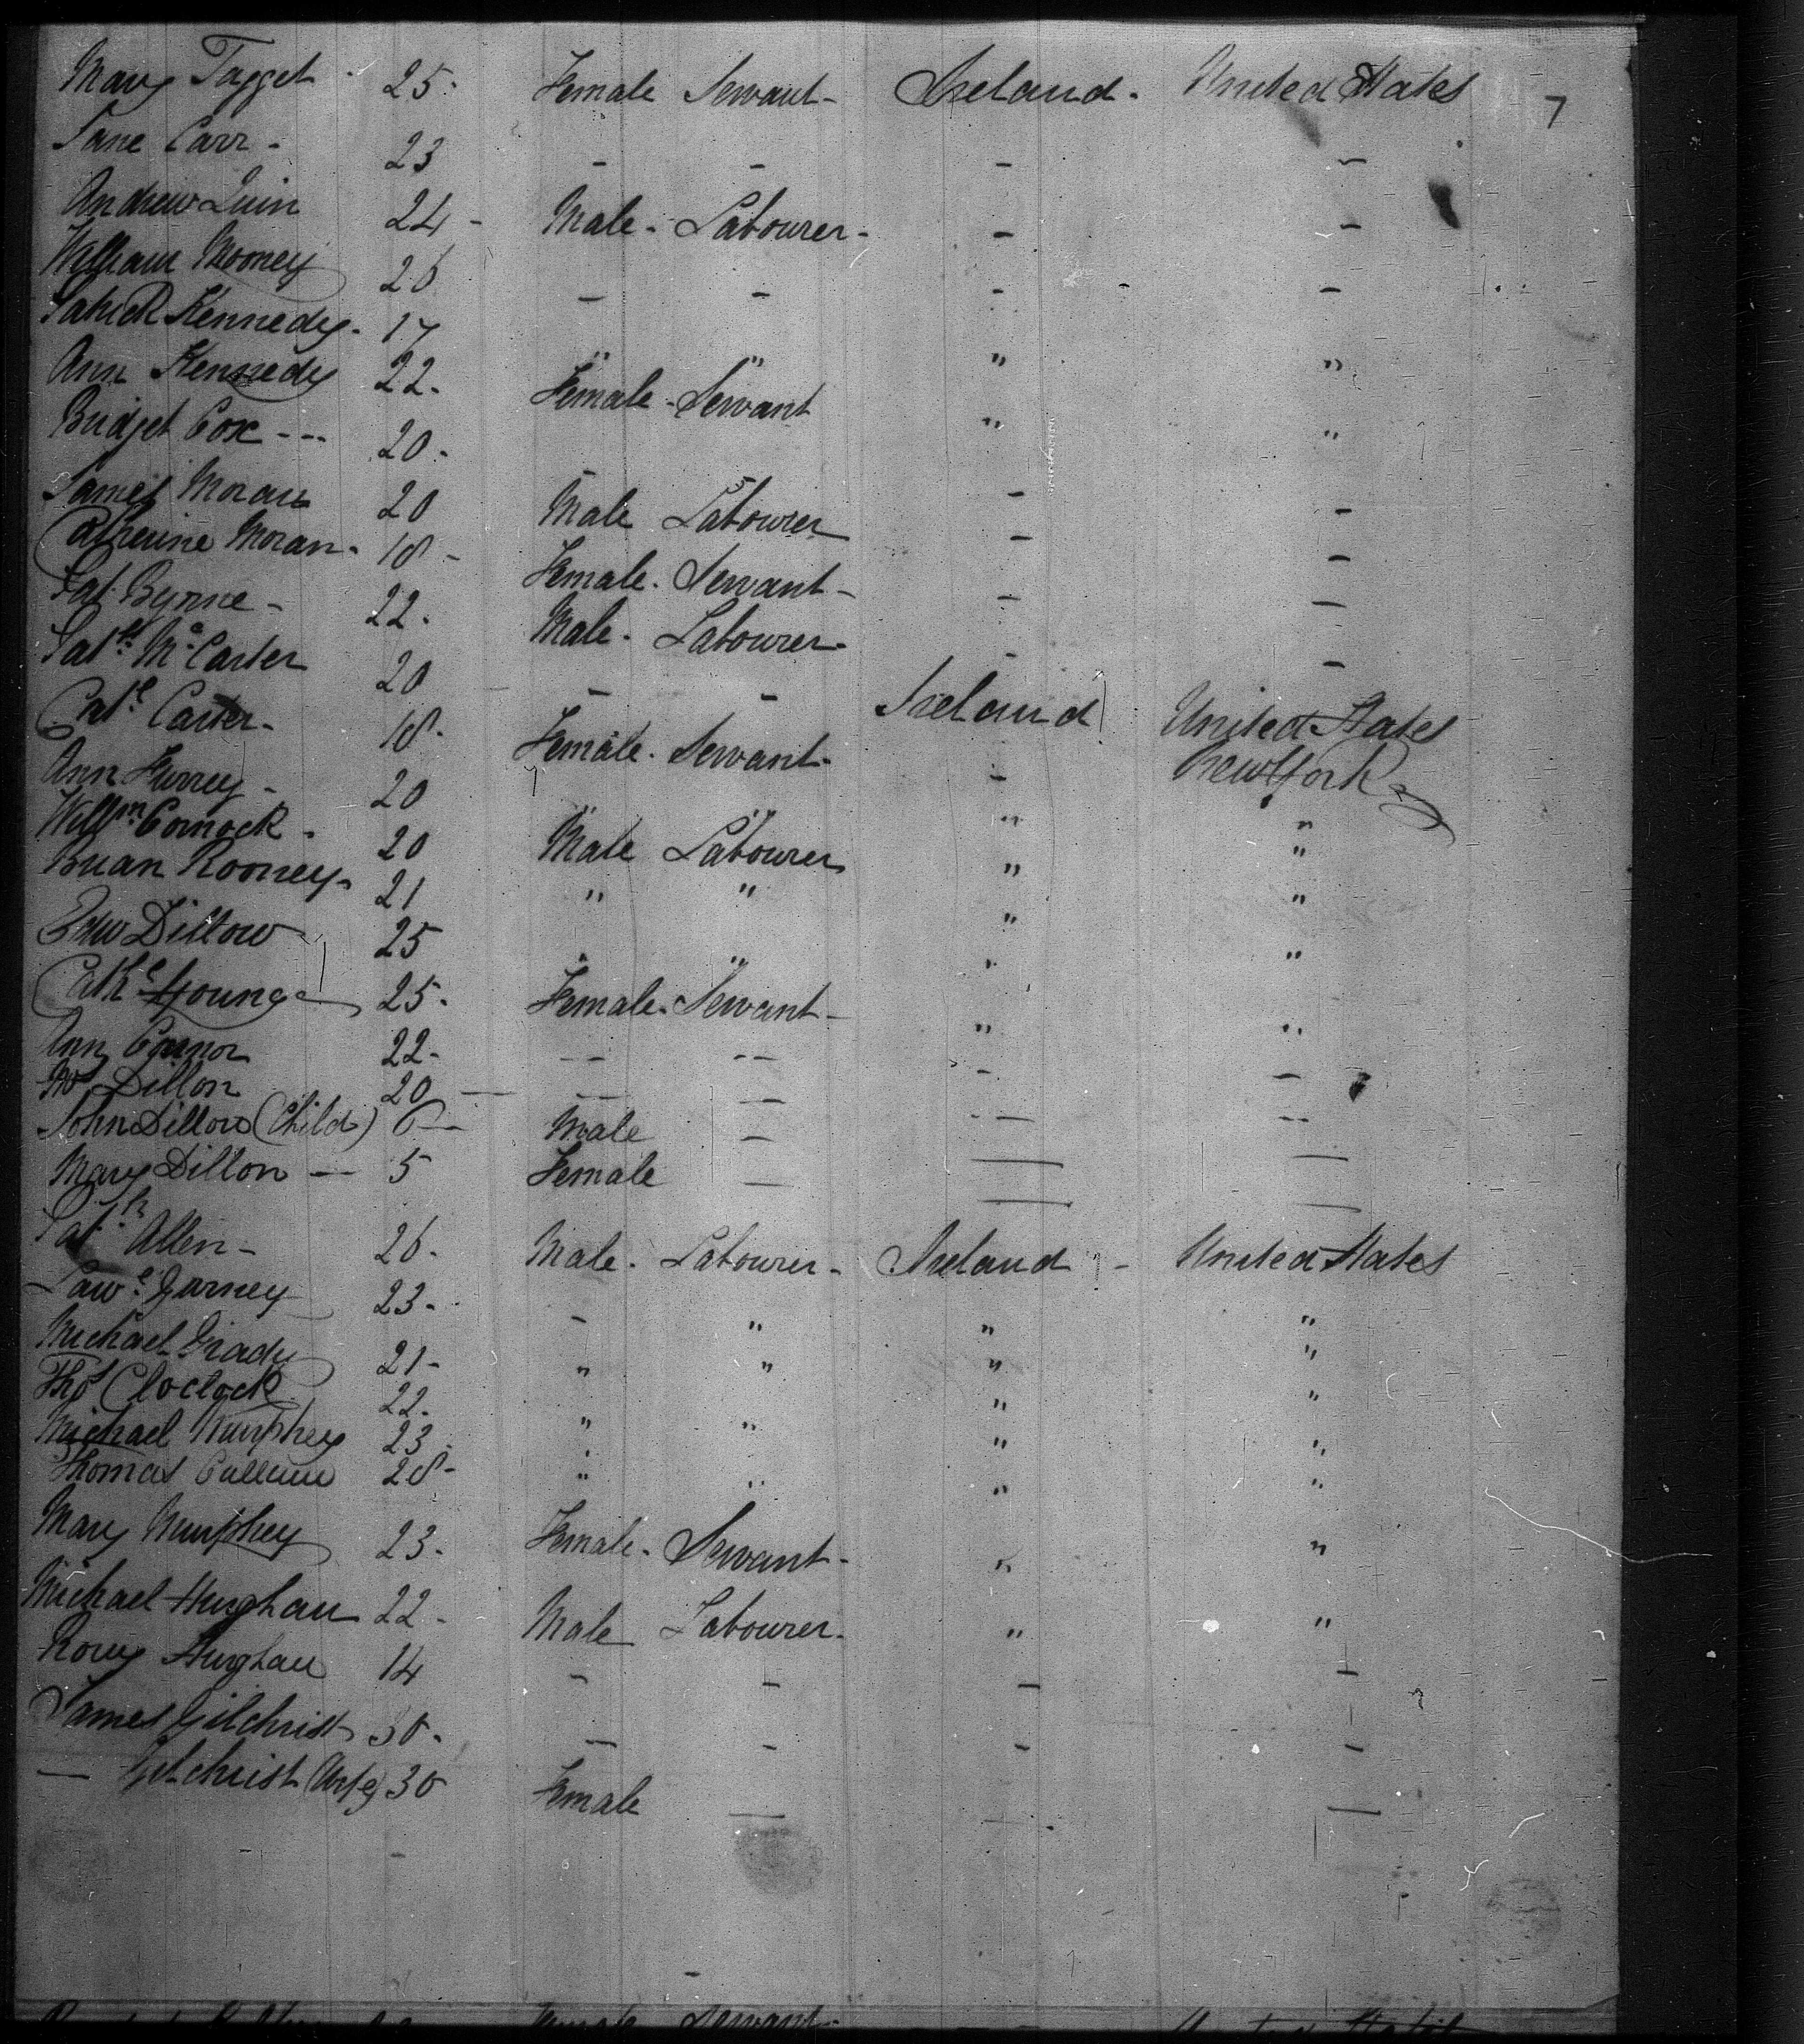 Mary Tagget - 25 - Female Servant - Ireland - United States 7
Jane Carr - 23 - - - -
Andrew Quin 24 - Male - Labourer - - -
William Mooney 26 - - - -
Patrick Kennedy - 17 " " " "
Ann Kennedy 22 - Female - Servant " "
Bridget Cox --- 20 - - - - -
James Moran 20 Male Labourer - -
Catherine Moran - 18 - Female - Servant - - -
Pat Byrne - 22 - Male - Labourer - - -
Patk McCarter 20 - - Ireland United States
Cathe Carter - 18 - Female - Servant - - New York
Ann Furrey - 20 " " " "
Willm Cornock - 20 Male Labourer " "
Brian Rooney - 21 " " " "
Edw Dillow 25 " " " "
Cathe Young 25 - Female - Servant - " "
Ann Connor 22 - -- -- - -
Dillon 20 — — — — —
John Dillow (Child) 6 — Male — — —
Mary Dillon — 5 Female — — —
Patk Allen - 26 - Male - Labourer - Ireland - United States
Lawe Gurney 23 - - " " "
Michael Grady 21 - " " " "
Thos Cloclock 22 - " " " "
Michael Murphey 23 - " " " "
Thomas Cullum 28 - " " " "
Mary Murphey 23 - Female - Servant - " "
Michael Hughan 22 - Male Labourer - " "
Rory Hughan 14 - - - -
James Gilchrist 30 - - - - -
— Gilchrist (Wife) 30 Female — — —
Female Servant - United States